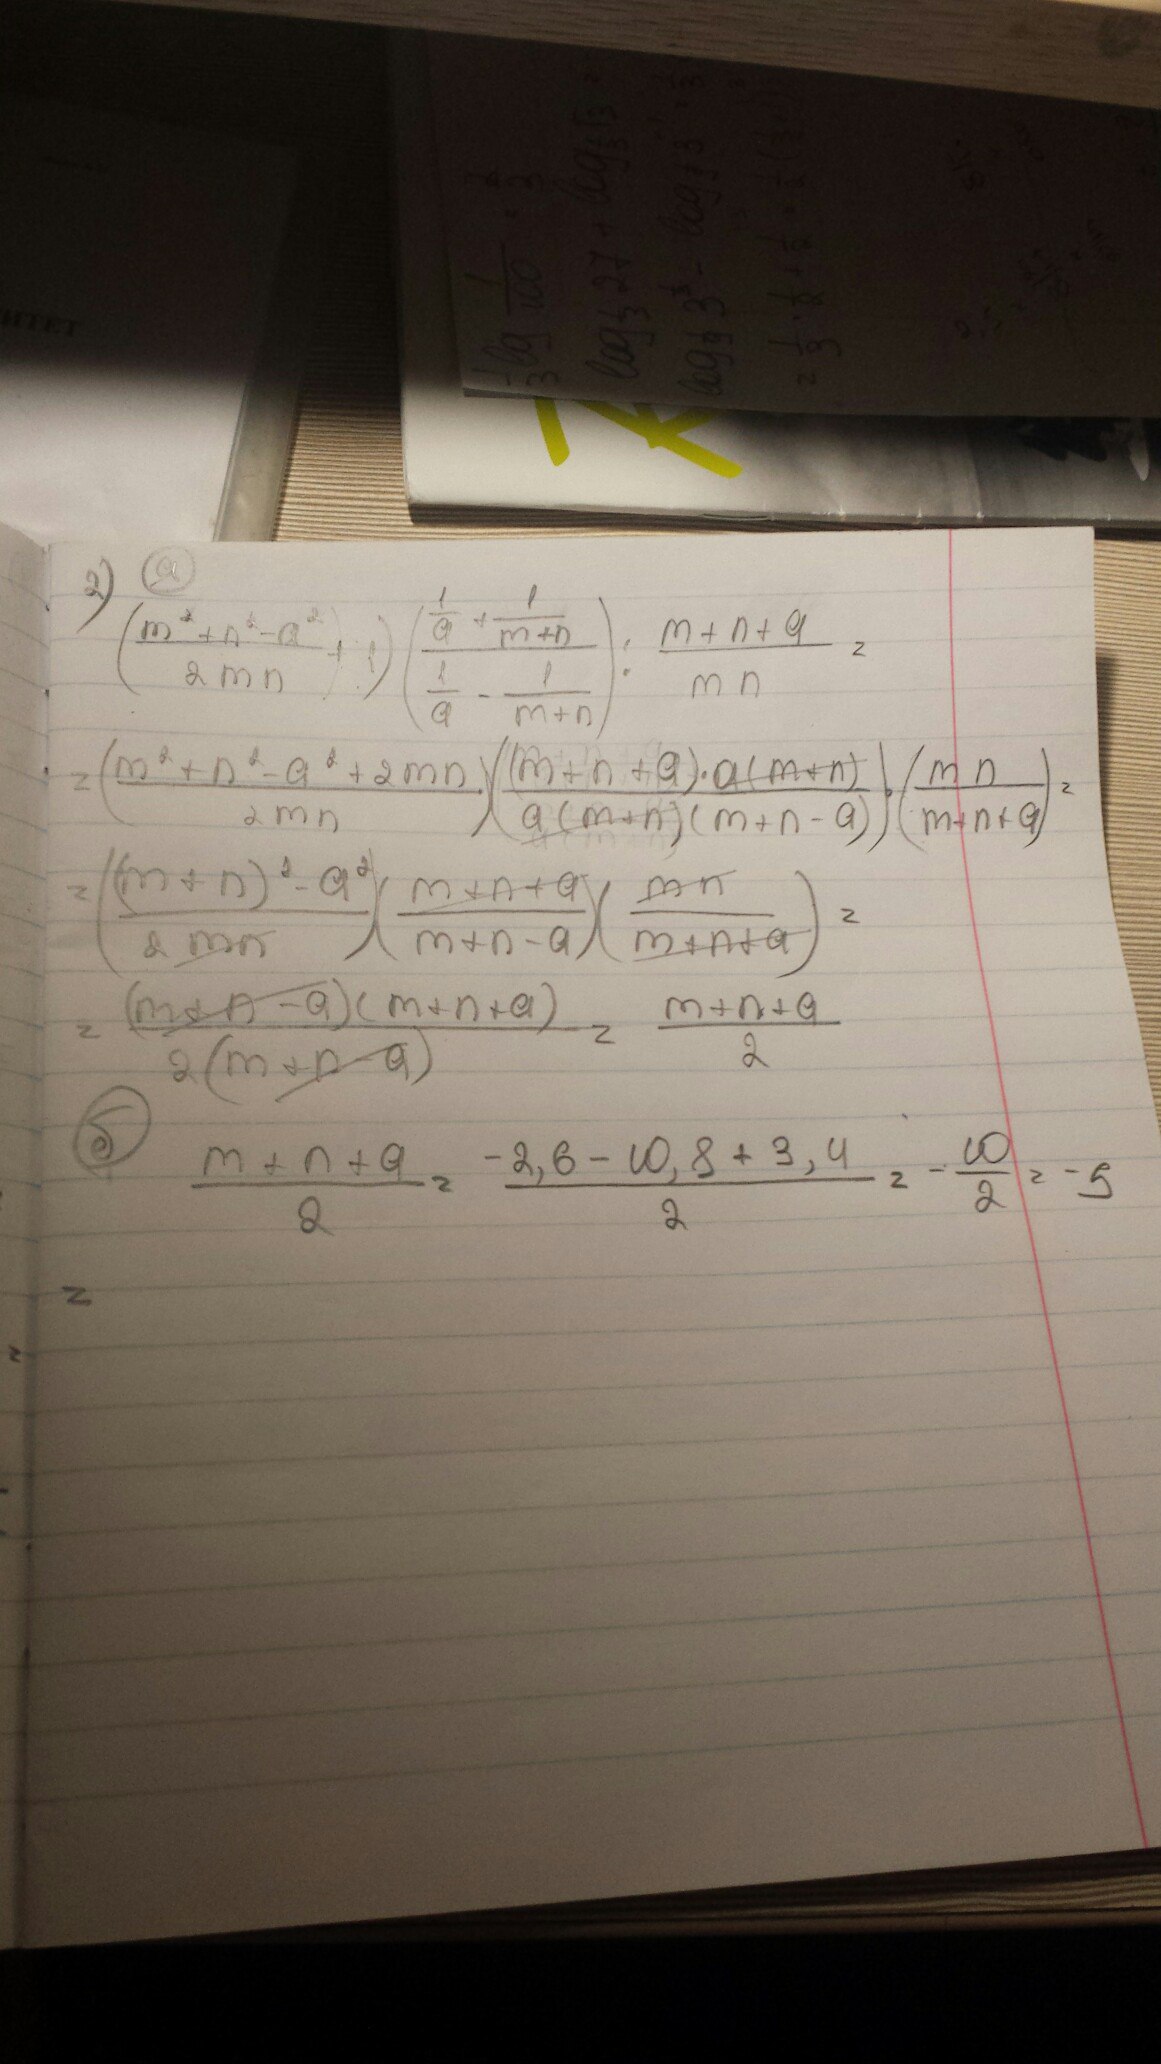 ИТЕТ
1/3 lg 1/100
log 27 + log
2) а
((m²+n²-a²)/(2mn) + 1) ((1/a + 1/(m+n))/(1/a - 1/(m+n))) : (m+n+a)/(mn) =
= ((m²+n²-a²+2mn)/(2mn)) ((m+n+a)·a(m+n)/(a(m+n)(m+n-a))) · (mn/(m+n+a)) =
= (((m+n)²-a²)/(2mn)) ((m+n+a)/(m+n-a)) (mn/(m+n+a)) =
= ((m+n-a)(m+n+a))/(2(m+n-a)) = (m+n+a)/2
б
(m+n+a)/2 = (-2,6-10,8+3,4)/2 = -10/2 = -5
=